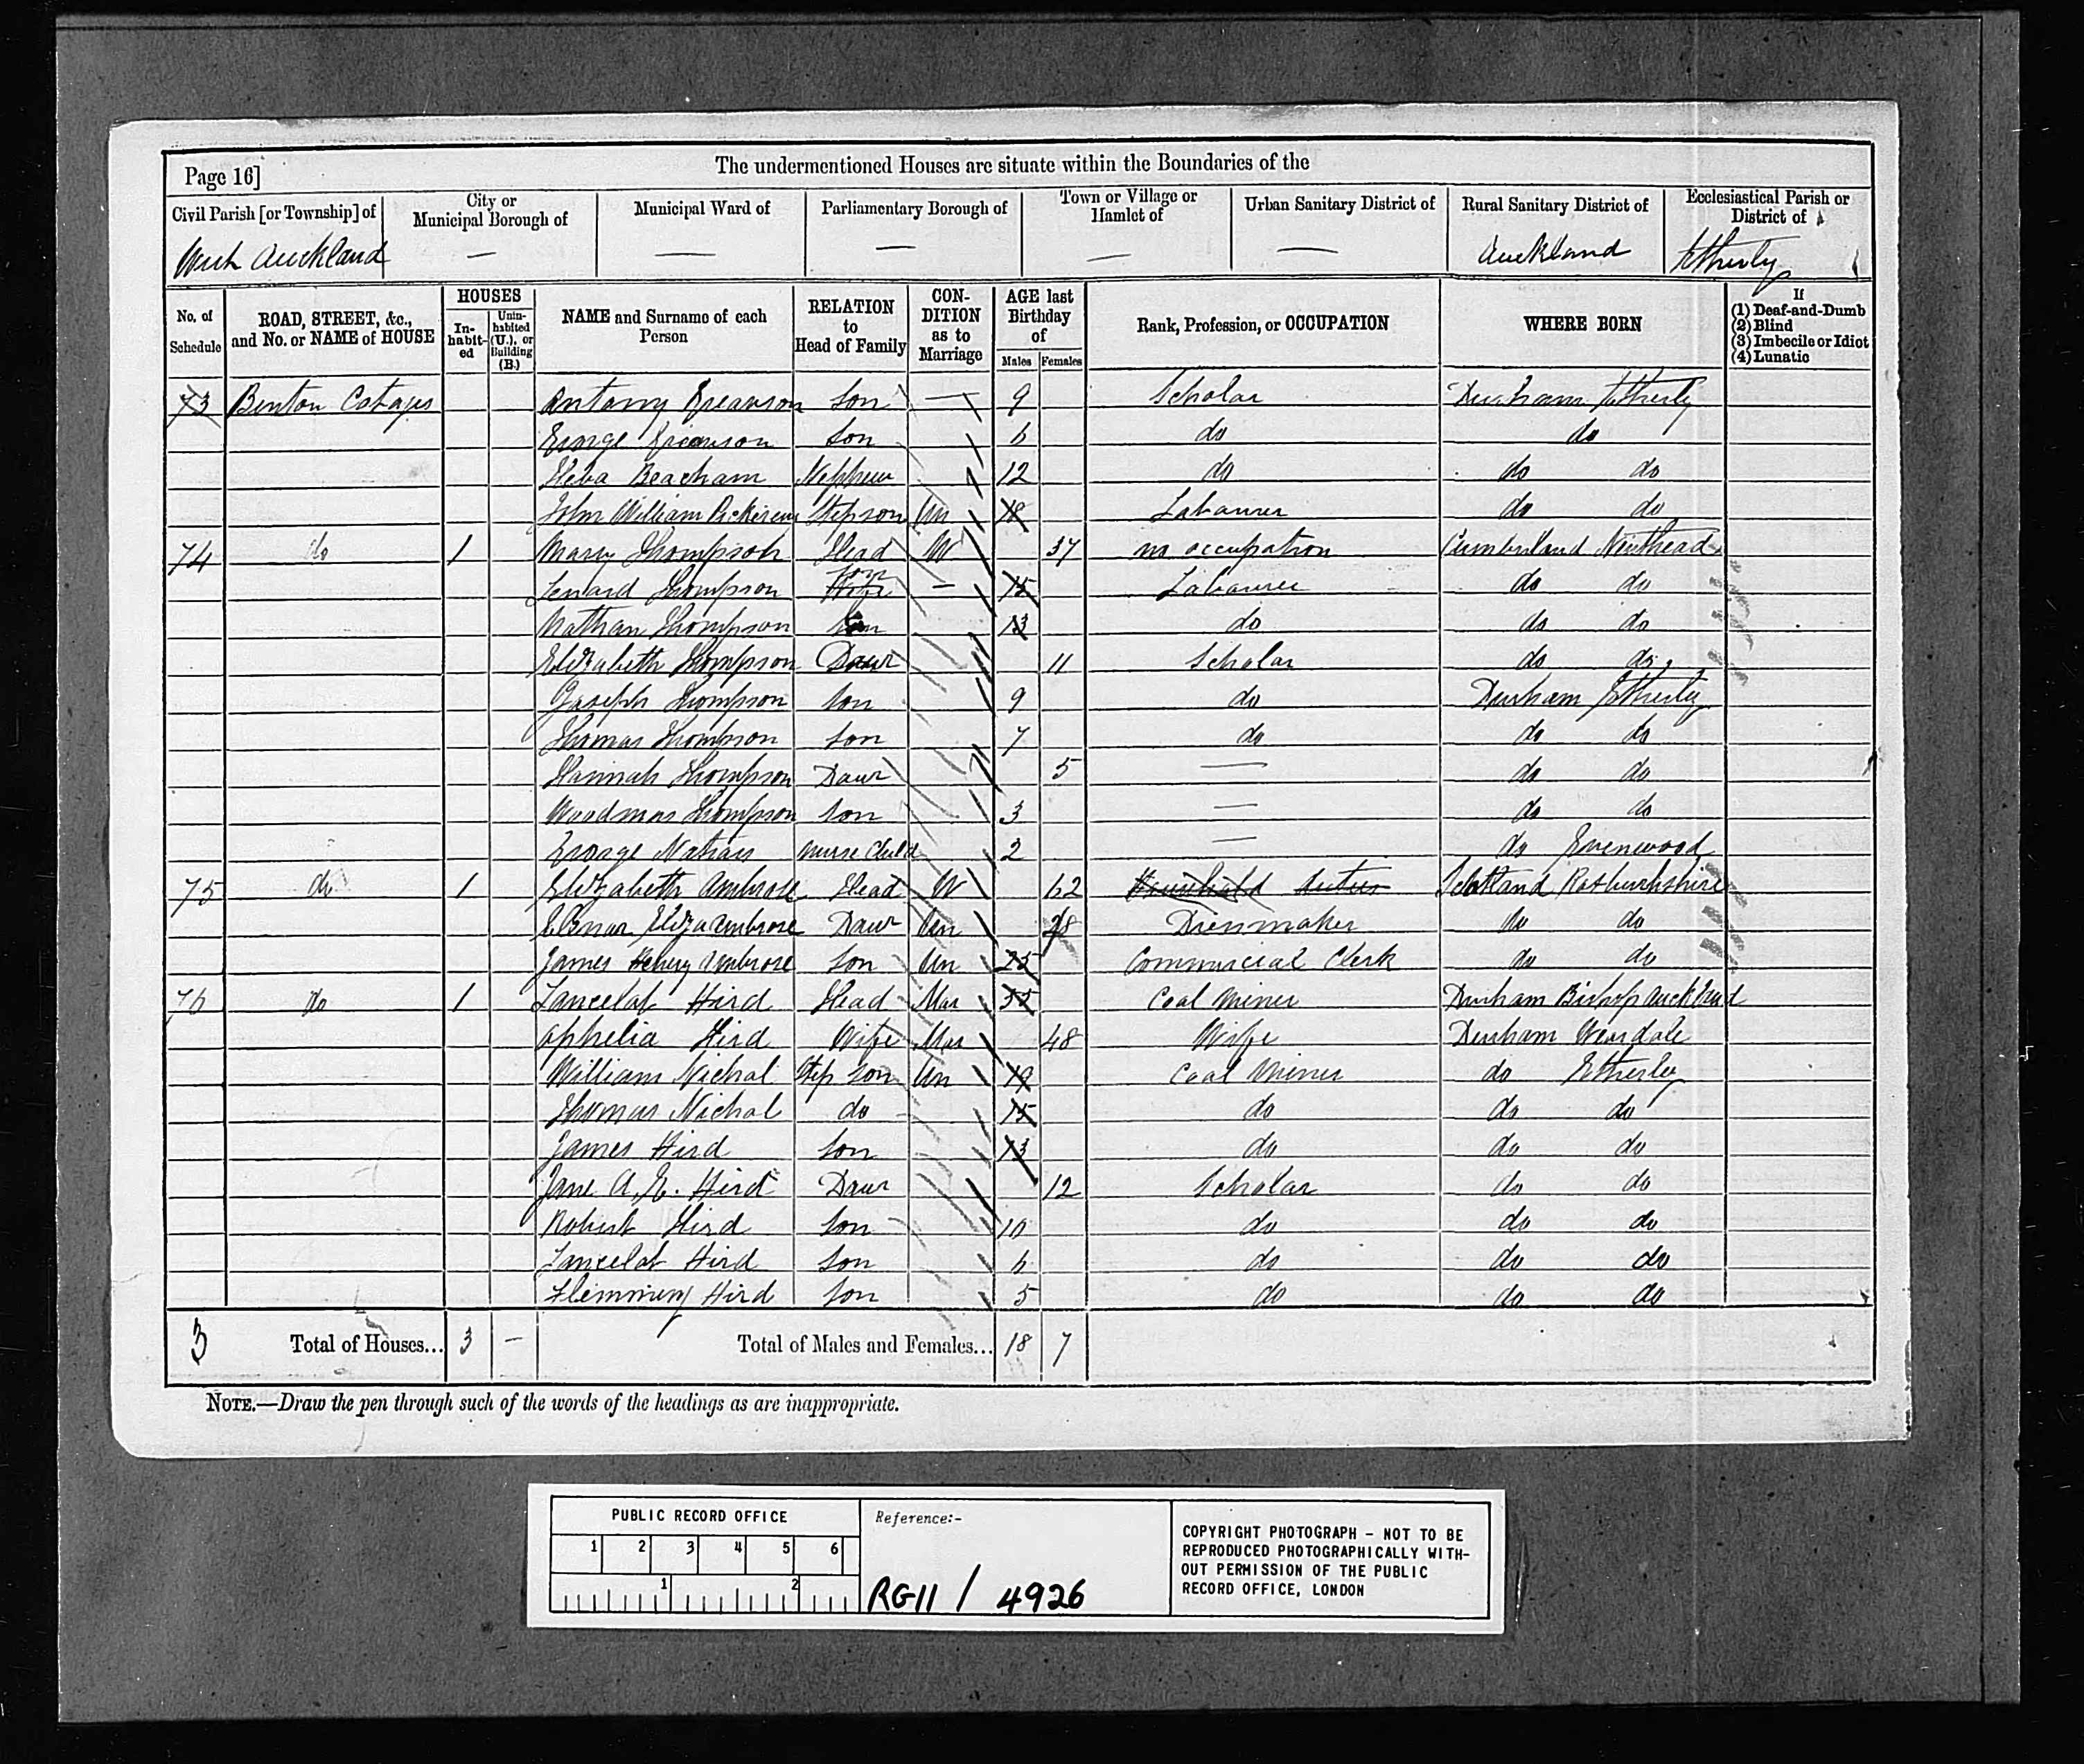 Page 16]
The undermentioned Houses are situate within the Boundaries of the
Civil Parish [or Township] of
City or Municipal Borough of
Municipal Ward of
Parliamentary Borough of
Town or Village or Hamlet of
Urban Sanitary District of
Rural Sanitary District of
Ecclesiastical Parish or District of
West Auckland — — — — — Auckland Etherly
No. of Schedule
ROAD, STREET, &c., and No. or NAME of HOUSE
HOUSES
In-habit-ed
Unin-habited (U.), or Building (B.)
NAME and Surname of each Person
RELATION to Head of Family
CON-DITION as to Marriage
AGE last Birthday of
Males Females
Rank, Profession, or OCCUPATION
WHERE BORN
If
(1) Deaf-and-Dumb
(2) Blind
(3) Imbecile or Idiot
(4) Lunatic
73 Benton Cotages Antony son — 9 Scholar Durham Etherly
George son 6 do do
Beacham Nephew 12 do do do
John William Stepson Un 18 Labourer do do
74 do 1 Mary Thompson Head W 37 no occupation Cumberland Nenthead
Lenard Thompson son — 15 Labourer do do
Nathan Thompson son 13 do do do
Elizabeth Thompson Daur 11 Scholar do do
Joseph Thompson son 9 do Durham Etherly
Thomas Thompson son 7 do do do
Hannah Thompson Daur 5 — do do
Woodmas Thompson son 3 — do do
George nurse Child 2 — do Evenwood
75 do 1 Elizabeth Ambrose Head W 62 Scotland Roxburkshire
Eliza Ambrose Daur Un 28 Dressmaker do do
James Henry Ambrose son Un 25 Commercial Clerk do do
76 do 1 Lancelot Hird Head Mar 35 Coal Miner Durham Bishop Auckland
Ophelia Hird Wife Mar 48 Wife Durham Weardale
William Nichol Step son Un 19 Coal Miner do Etherley
Thomas Nichol do 15 do do do
James Hird son 13 do do do
Jane A. E. Hird Daur 12 Scholar do do
Robert Hird son 10 do do do
Lancelot Hird son 6 do do do
Flemming Hird son 5 do do do
3 Total of Houses... 3 — Total of Males and Females... 18 7
NOTE.—Draw the pen through such of the words of the headings as are inappropriate.
PUBLIC RECORD OFFICE
1 2 3 4 5 6
1 2
Reference:-
RG11 / 4926
COPYRIGHT PHOTOGRAPH - NOT TO BE
REPRODUCED PHOTOGRAPHICALLY WITH-
OUT PERMISSION OF THE PUBLIC
RECORD OFFICE, LONDON